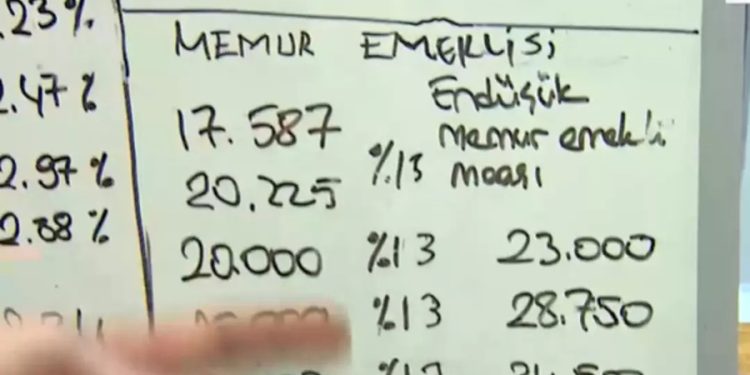 .23%
MEMUR EMEKLİSİ
Endüşük
.47%
17.587
memur emekli
%13 maaşı
2.97%
20.225
2.88%
20.000 %13 23.000
%13 28.750